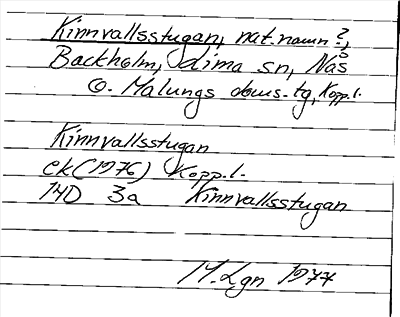 Kinnvallsstugan, nat.namn?,
Backholm, Lima sn, Nås
o. Malungs doms.-tg, Kopp.l.
Kinnvallsstugan
ek (1976) Kopp.l.
14D 3a Kinnvallsstugan
M.Lgn 1977